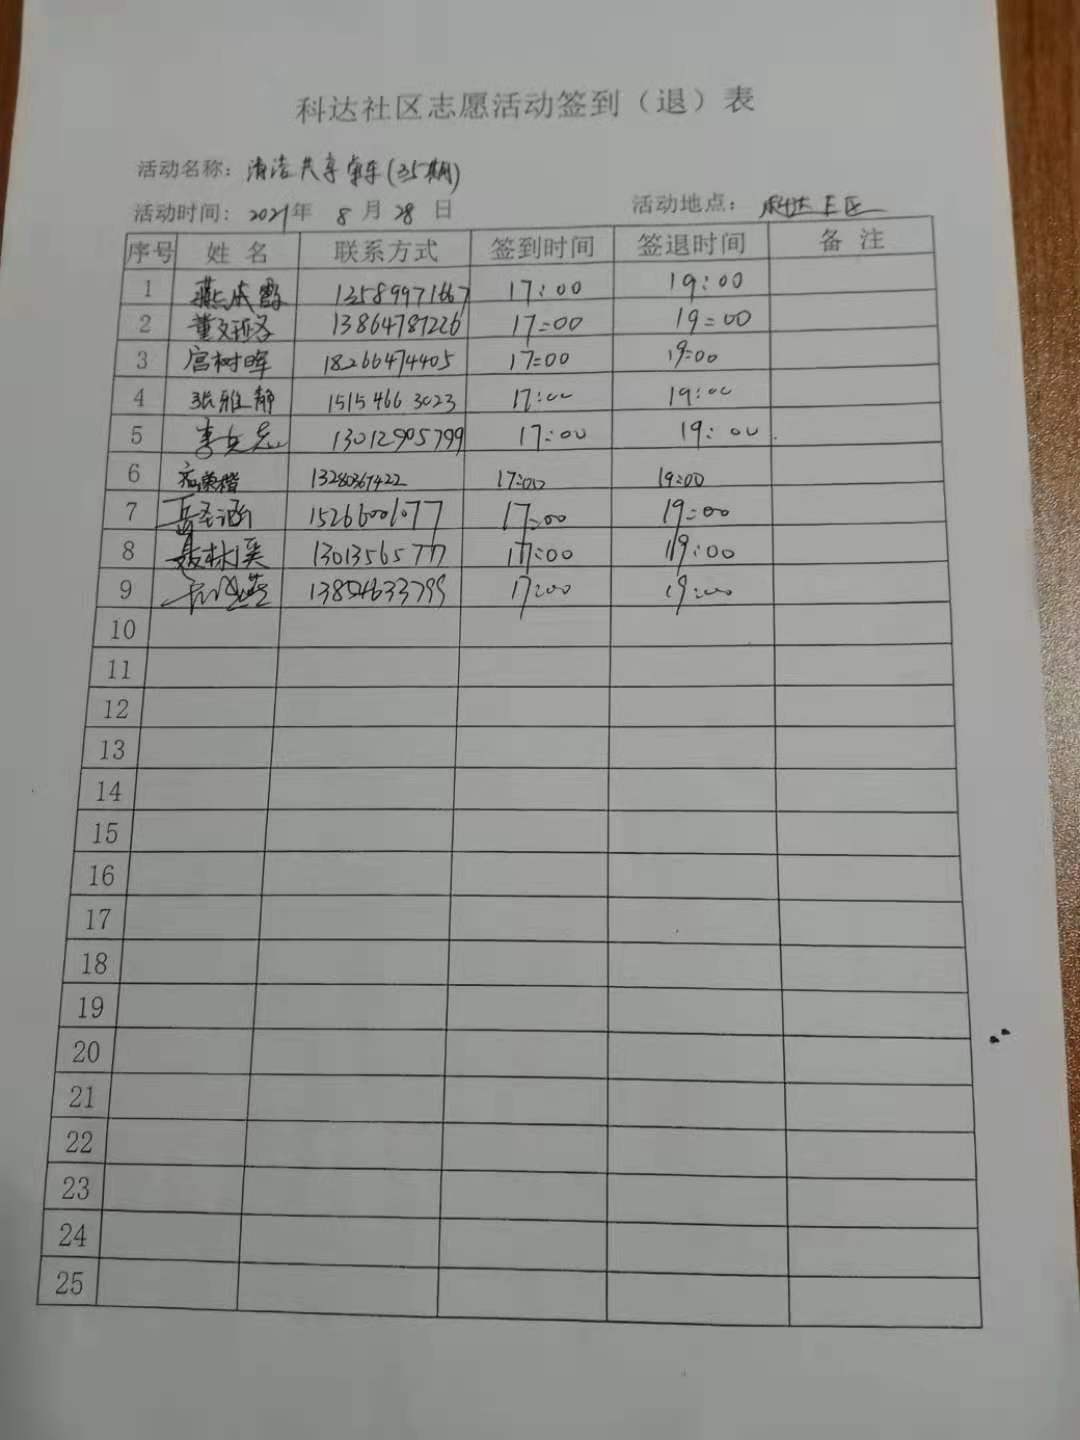 科达社区志愿活动签到（退）表
活动名称：清洁共享单车(35期)
活动时间：2021年 8月 28日 活动地点：科达社区
序号 姓名 联系方式 签到时间 签退时间 备注
1 13589971667 17:00 19:00
2 13864787226 17:00 19:00
3 宫树晖 18266474405 17:00 19:00
4 张雅静 15154663023 17:00 19:00
5 13012905799 17:00 19:00
6 13280367422 17:00 19:00
7 岳圣涵 15266001077 17:00 19:00
8 聂林溪 13013565777 17:00 19:00
9 13854633799 17:00 19:00
10
11
12
13
14
15
16
17
18
19
20
21
22
23
24
25